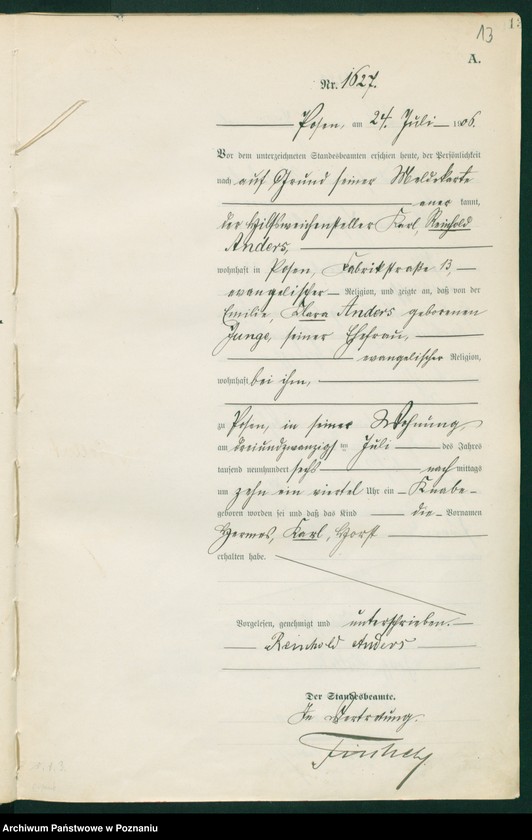 13
A.
Nr. 1627.
Posen, am 24. Juli 1906.
Vor dem unterzeichneten Standesbeamten erschien heute, der Persönlichkeit
nach auf Grund seiner Meldekarte
aner kannt,
der Hilfsweichensteller Karl, Reinhold
Anders,
wohnhaft in Posen, Fabrikstraße 13,
evangelischer Religion, und zeigte an, daß von der
Emilie, Klara Anders geborenen
Junge, seiner Ehefrau,
evangelischer Religion,
wohnhaft bei ihm,
zu Posen, in seiner Wohnung
am dreiundzwanzigsten Juli des Jahres
tausend neunhundert sechs nach mittags
um zehn ein viertel Uhr ein Knabe
geboren worden sei und daß das Kind die Vornamen
Karl, Horst
erhalten habe.
Vorgelesen, genehmigt und unterschrieben.
Reinhold Anders
Der Standesbeamte.
In Vertretung.
Archiwum Państwowe w Poznaniu